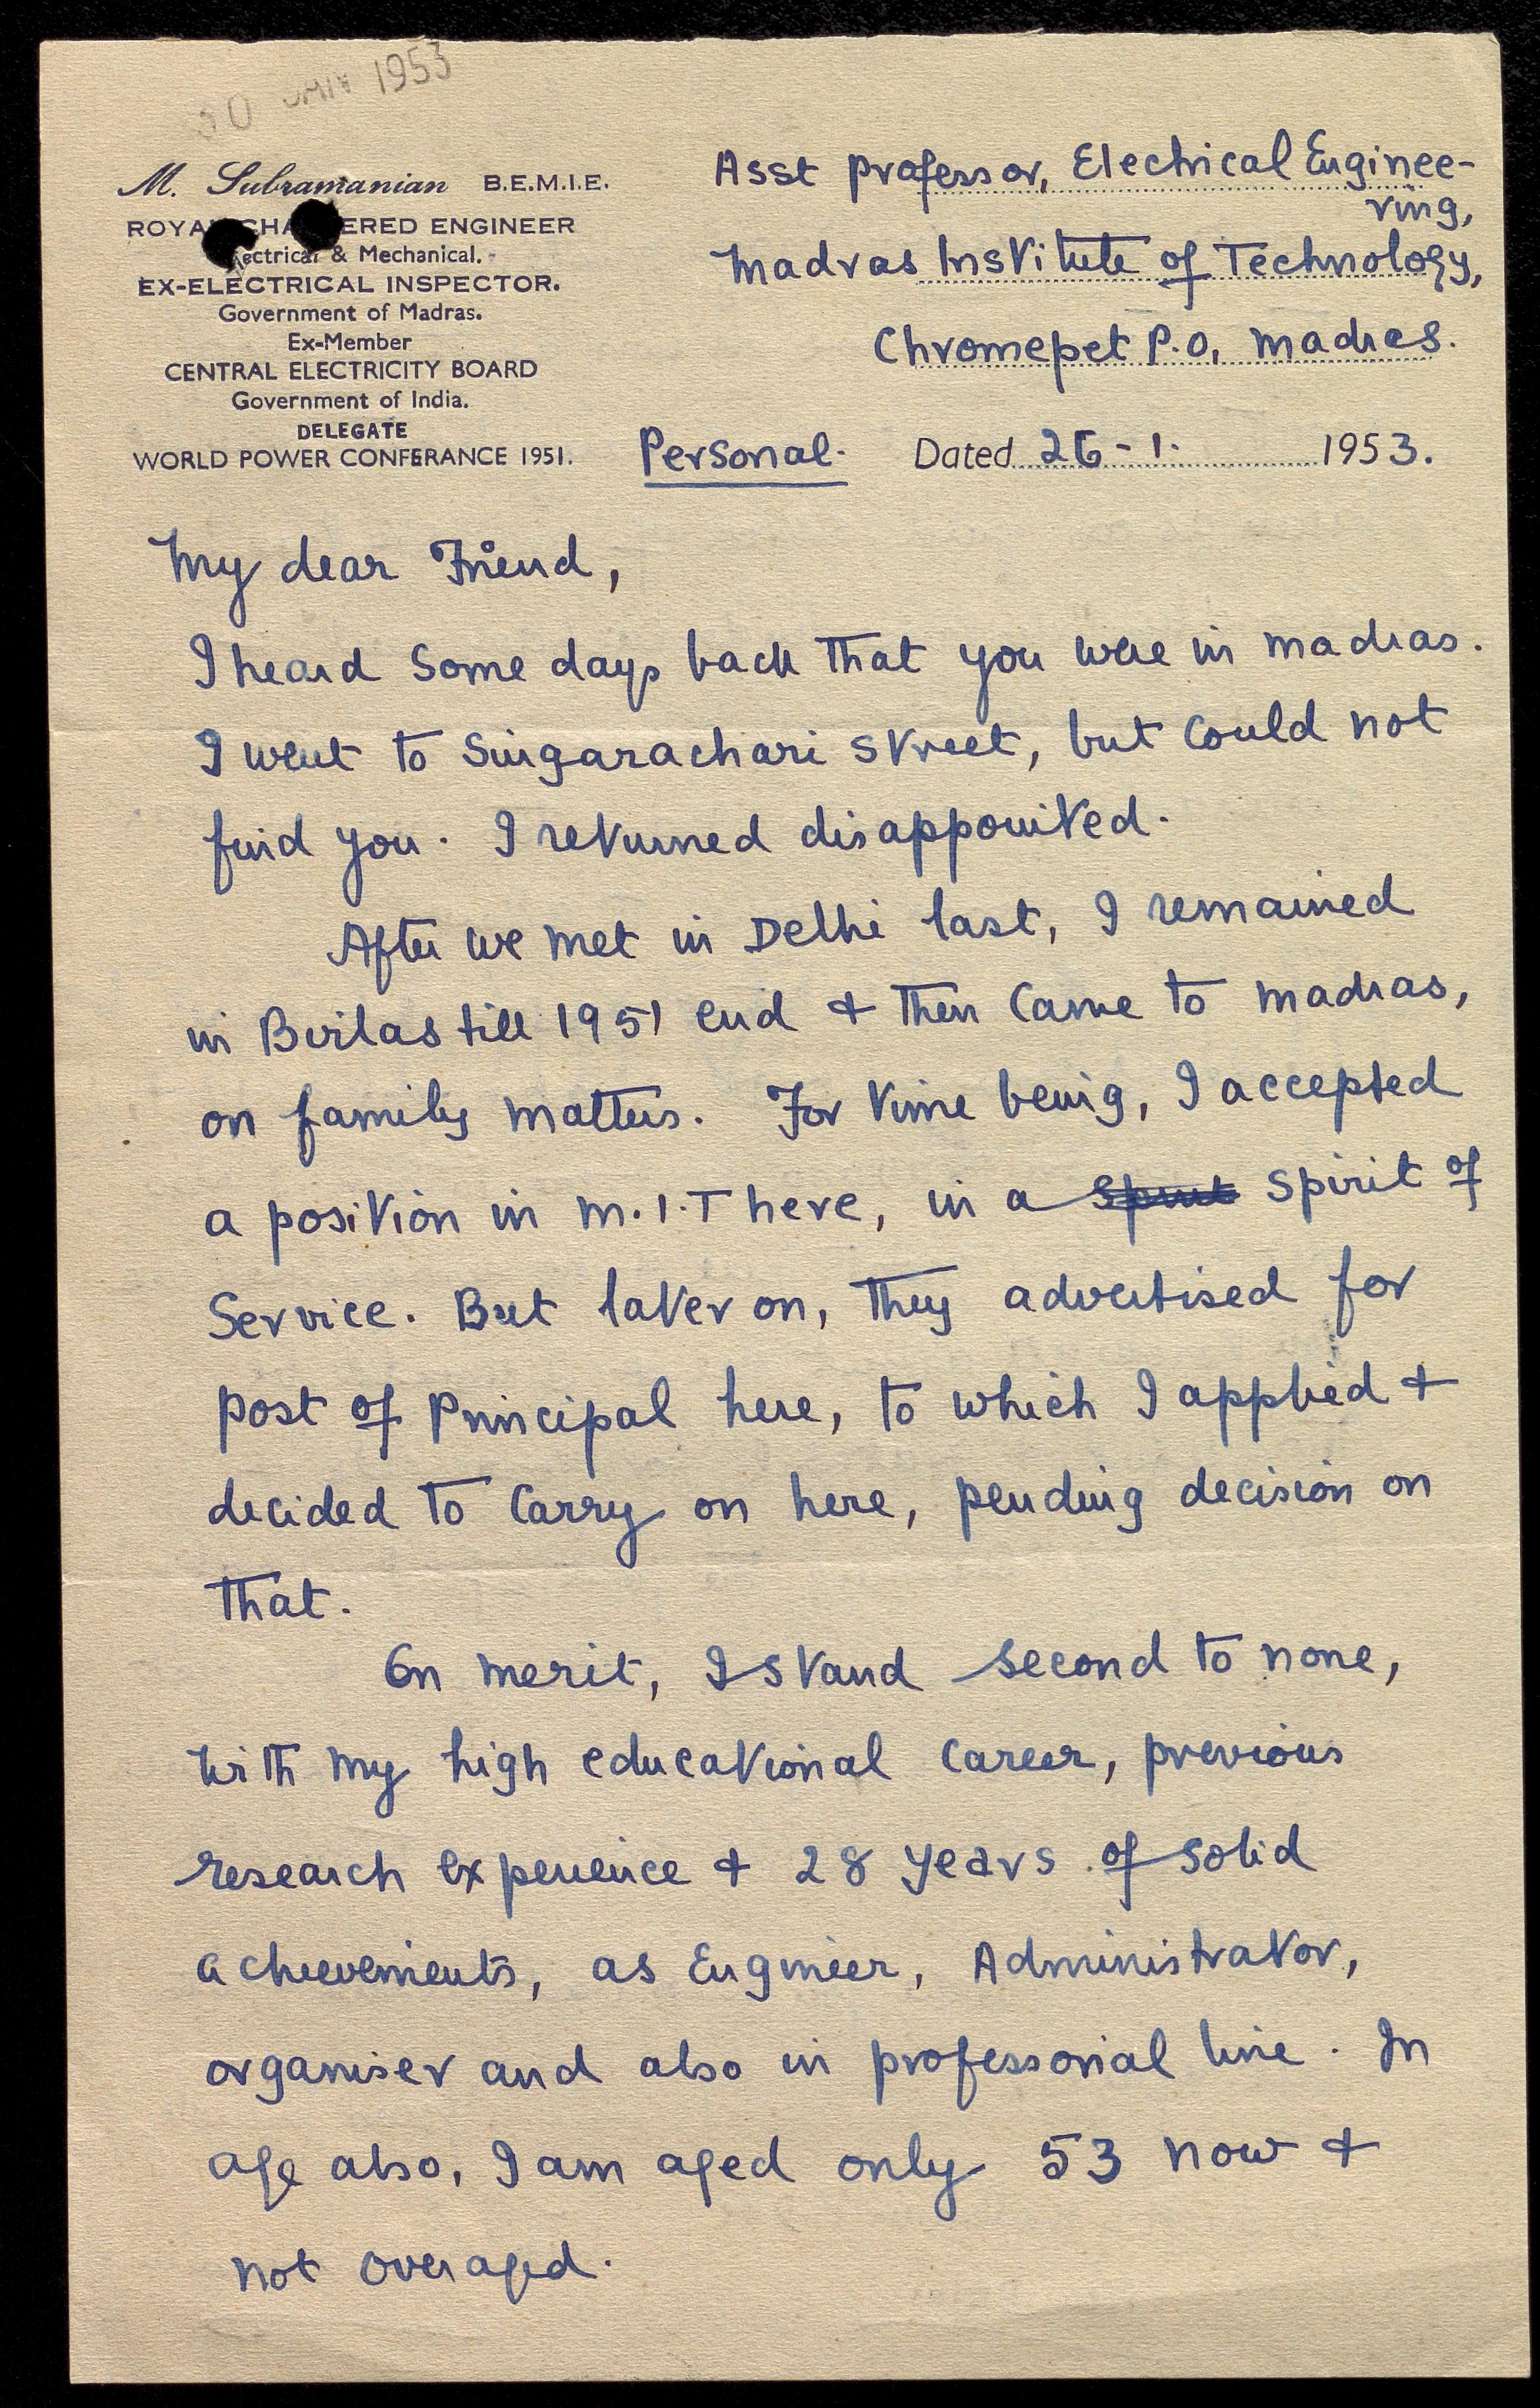 30 JAN 1953
M. Subramanian B.E.M.I.E.
ROYAL CHARTERED ENGINEER
Electrical & Mechanical.
EX-ELECTRICAL INSPECTOR.
Government of Madras.
Ex-Member
CENTRAL ELECTRICITY BOARD
Government of India.
DELEGATE
WORLD POWER CONFERANCE 1951.
Asst Professor, Electrical Enginee-
ring,
Madras Institute of Technology,
Chromepet P.O, Madras.
Personal. Dated 26-1. 1953.
My dear Friend,
I heard some days back that you were in Madras.
I went to Singarachari Street, but could not
find you. I returned disappointed.
After we met in Delhi last, I remained
in Birlas till 1951 end + then came to Madras,
on family matters. For time being, I accepted
a position in M.I.T here, in a spirit of
Service. But later on, they advertised for
post of Principal here, to which I applied +
decided to carry on here, pending decision on
that.
On merit, I stand second to none,
with my high educational career, previous
research experience + 28 years of solid
achievements, as Engineer, Administrator,
organiser and also in professorial line. In
age also, I am aged only 53 now +
not overaged.